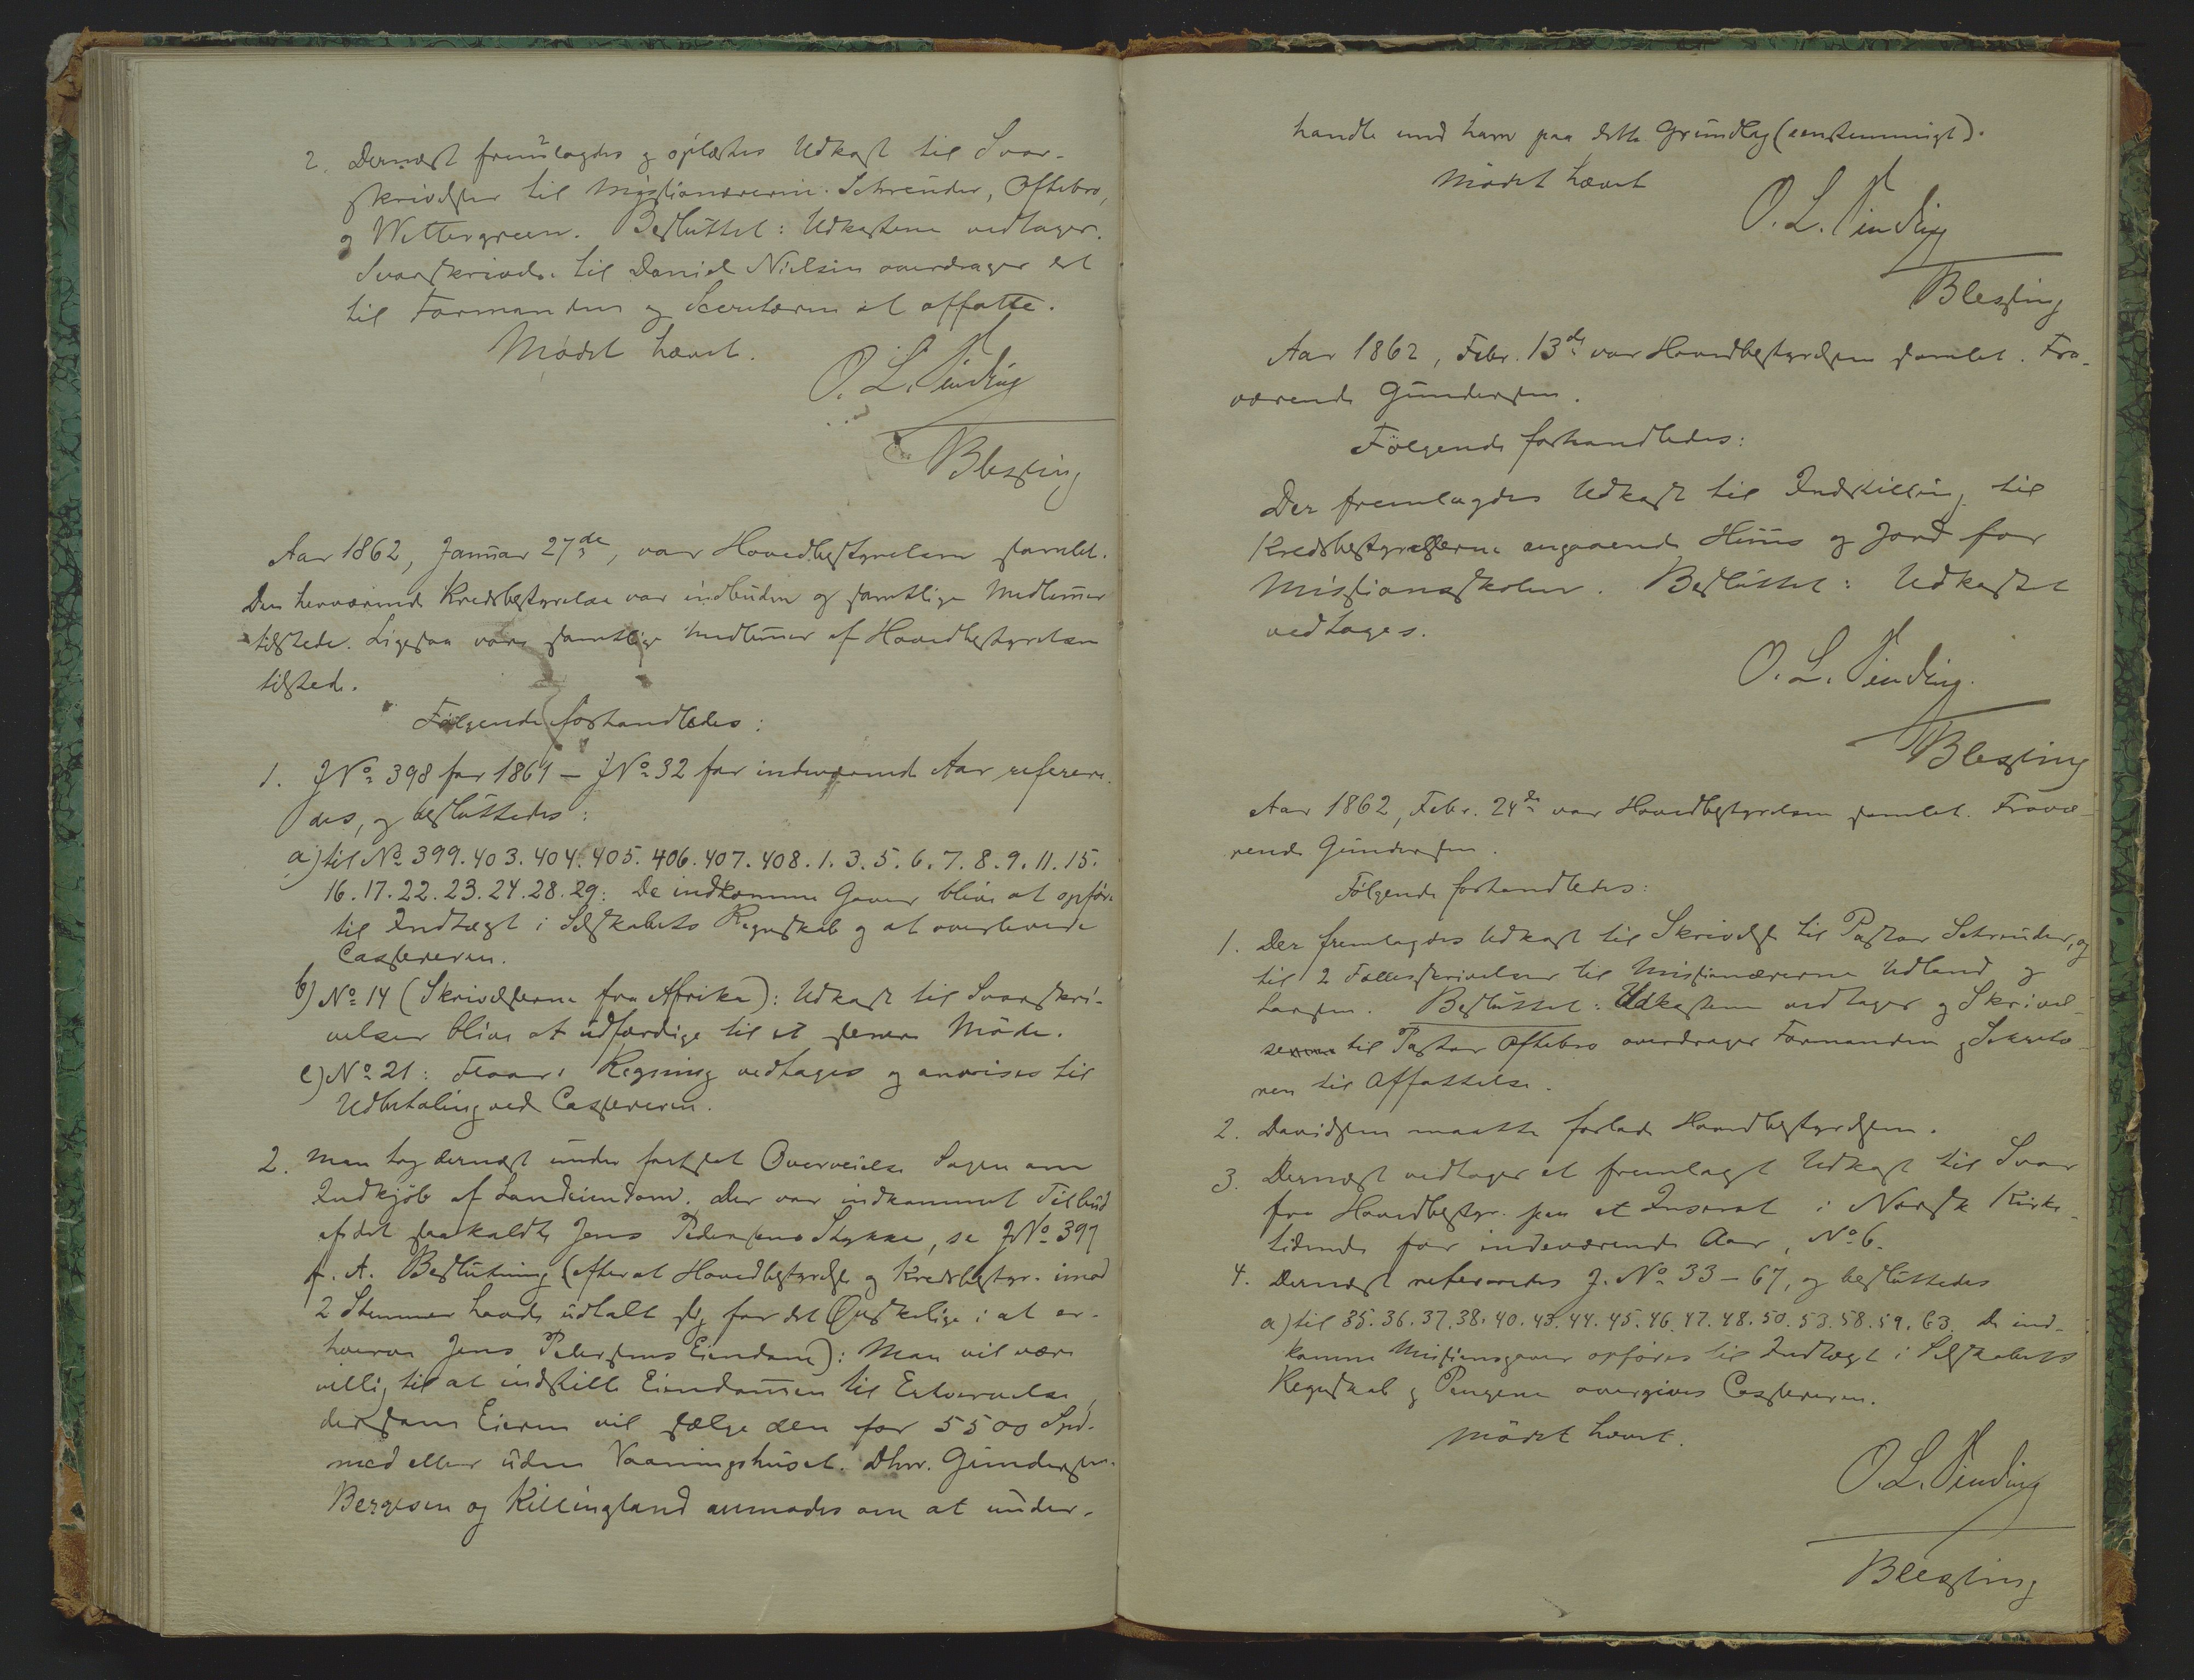 2. Dernæst fremlagdes og oplæstes Udkast til Svar-
skrivelser til Missionærerne Schreuder, Oftebro,
og Wettergreen. Besluttet: Udkastene vedtages.
Svarskrivelse til Daniel Nielsen overdrages det
til Formanden og Secretæren at affatte.
Mødet hævet.
O. L. Sinding
Blessing
Aar 1862, Januar 27de, var Hovedbestyrelsen samlet.
Den herværende Kredsbestyrelse var indbuden og samtlige Medlemmer
tilstede. Ligesaa vare samtlige Medlemmer af Hovedbestyrelsen
tilstede.
Følgende forhandledes:
1. J No 398 for 1861 – J No 32 for indeværende Aar referere-
des, og besluttedes:
a) til No 399. 403. 404. 405. 406. 407. 408. 1. 3. 5. 6. 7. 8. 9. 11. 15.
16. 17. 22. 23. 24. 28. 29: De indkomne Gaver blive at opføre
til Indtægt i Selskabets Regnskab og at overlevere
Cassereren.
b) No 14 (Skrivelserne fra Afrika): Udkast til Svarskri-
velser blive at udfærdige til et senere Møde.
c) No 21: Floors Regning vedtages og anvises til
Udbetaling ved Cassereren.
2. Man tog dernæst under fortsat Overveielse Sagen om
Indkjøb af Landeiendom. Der var indkommet Tilbud
af det saakaldte Jens Pedersens Stykke, se J No 397
f. A. Beslutning (efterat Hovedbestyrelse og Kredsbestyr. imod
2 Stemmer havde udtalt sig for det Ønskelige i at er-
hverve Jens Pedersens Eiendom): Man vil være
villig til at indstille Eiendommen til Erhvervelse,
dersom Eieren vil sælge den for 5500 Spd.
med eller uden Vaaningshuset. Dhrr. Gundersen.
Bergesen og Killingland anmodes om at under-
handle med ham paa dette Grundlag (eenstemmigt).
Mødet hævet
O. L. Sinding
Blessing
Aar 1862, Febr. 13de var Hovedbestyrelsen samlet. Fra-
værende Gundersen.
Følgende forhandledes:
Der fremlagdes Udkast til Indstilling til
Kredsbestyrelserne angaaende Huus og Jord for
Missionsskolen. Besluttet: Udkastet
vedtages.
O. L. Sinding.
Blessing
Aar 1862, Febr. 24de var Hovedbestyrelsen samlet. Fravæ-
rende Gundersen.
Følgende forhandledes:
1. Der fremlagdes Udkast til Skrivelse til Pastor Schreuder, og
til 2 Fællesskrivelser til Missionærerne Udland og
Larsen. Besluttet: Udkastene vedtages og Skrivel-
se til Pastor Oftebro overdrages Formanden og Sekretæ-
ren til Affattelse.
2. Davidsen maatte forlade Hovedbestyrelsen.
3. Dernæst vedtages et fremlagt Udkast til Svar
fra Hovedbestyr. paa et Inserat i Norsk Kirke-
tidende for indeværende Aar, No 6.
4. Dernæst refereredes J. No 33 – 67, og besluttedes
a) til 35. 36. 37. 38. 40. 43. 44. 45. 46. 47. 48. 50. 53. 58. 59. 63. De ind-
komne Missionsgaver opføres til Indtægt i Selskabets
Regnskab og Pengene overgives Cassereren.
Mødet hævet.
O. L. Sinding
Blessing